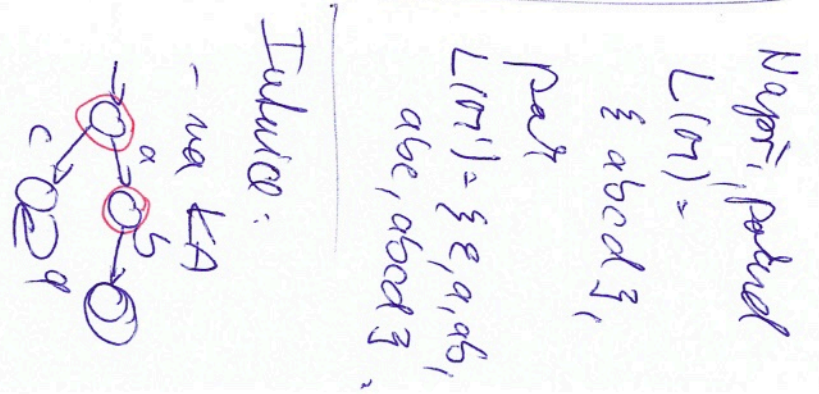 Např., pokud
L(M) =
{abcd},
pak
L(M') = {ε, a, ab,
abc, abcd}.
Intuice:
- na KA
a
b
c
q